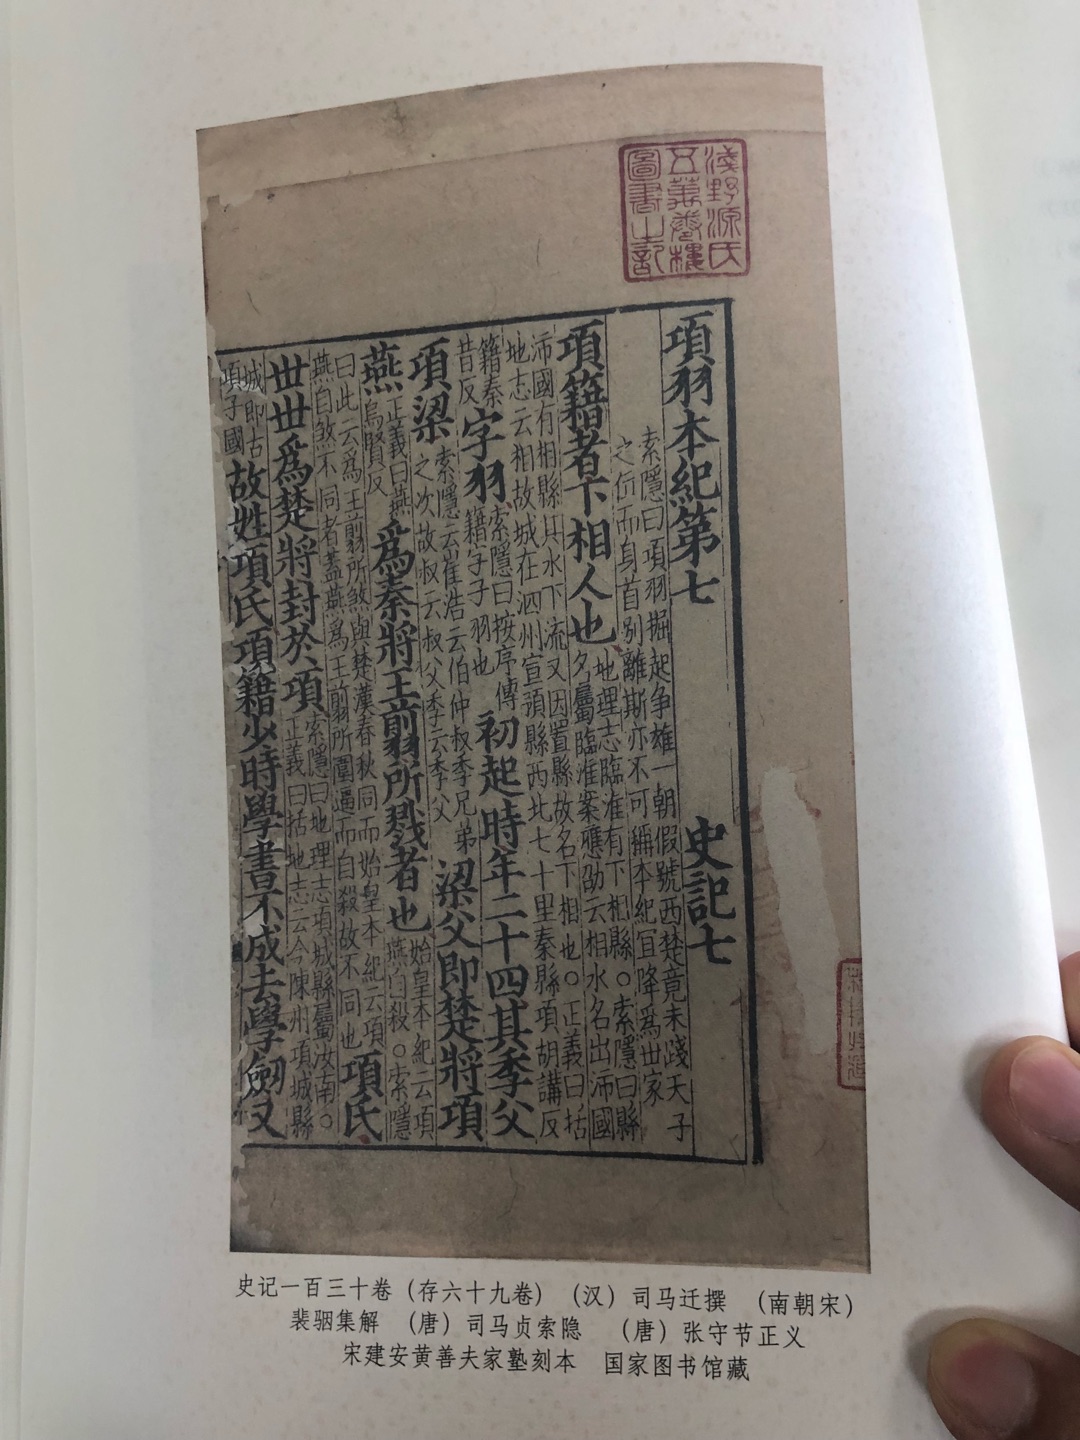 淺野源氏
五萬卷樓
圖書之記
項羽本紀第七　史記七
索隱曰項羽掘起争雄一朝假號西楚竟未踐天子
之位而身首别離斯亦不可稱本紀宜降爲世家
項籍者下相人也地理志臨淮有下相縣。索隱曰縣名屬臨淮案應劭云相水名出沛國
沛國有相縣其水下流又因置縣故名下相也。正義曰括
地志云相故城在泗州宣預縣西北七十里秦縣項胡講反
籍秦昔反字羽索隱曰按序傳籍字子羽也初起時年二十四其季父
項梁索隱云崔浩云伯仲叔季兄弟之次故叔云叔父季云季父梁父即楚將項
燕正義曰燕烏賢反爲秦將王翦所戮者也始皇本紀云項燕自殺。索隱
曰此云爲王翦所煞與楚漢春秋同而始皇本紀云項燕自煞不同者蓋燕爲王翦所圍逼而自殺故不同也項氏
世世爲楚將封於項索隱曰地理志項城縣屬汝南。正義曰括地志云今陳州項城縣
城即古項子國故姓項氏項籍少時學書不成去學劍又
史记一百三十卷（存六十九卷）（汉）司马迁撰　（南朝宋）
裴骃集解　（唐）司马贞索隐　（唐）张守节正义
宋建安黄善夫家塾刻本　国家图书馆藏